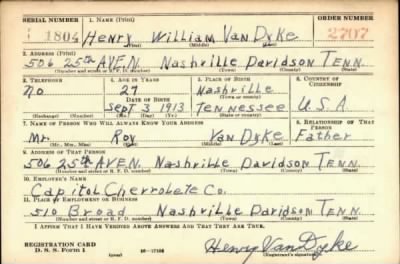 SERIAL NUMBER 1. NAME (Print) ORDER NUMBER
1804 Henry William VanDyke 2707
(First) (Middle) (Last)
2. ADDRESS (Print)
506 25th AVE N. Nashville Davidson TENN.
(Number and street or R. F. D. number) (Town) (County) (State)
3. TELEPHONE 4. AGE IN YEARS 5. PLACE OF BIRTH 6. COUNTRY OF CITIZENSHIP
No 27 Nashville
DATE OF BIRTH (Town or county)
Sept 3 1913 Tennessee U.S.A
(Exchange) (Number) (Mo.) (Day) (Yr.) (State or country)
7. NAME OF PERSON WHO WILL ALWAYS KNOW YOUR ADDRESS 8. RELATIONSHIP OF THAT PERSON
Mr. Roy VanDyke Father
(Mr., Mrs., Miss) (First) (Middle) (Last)
9. ADDRESS OF THAT PERSON
506 25th AVE N. Nashville Davidson TENN.
(Number and street or R. F. D. number) (Town) (County) (State)
10. EMPLOYER'S NAME
Capitol Chevrolete Co.
11. PLACE OF EMPLOYMENT OR BUSINESS
510 Broad Nashville Davidson TENN
(Number and street or R. F. D. number) (Town) (County) (State)
I AFFIRM THAT I HAVE VERIFIED ABOVE ANSWERS AND THAT THEY ARE TRUE.
REGISTRATION CARD
D. S. S. Form 1 (over) Henry VanDyke
(Registrant's signature)